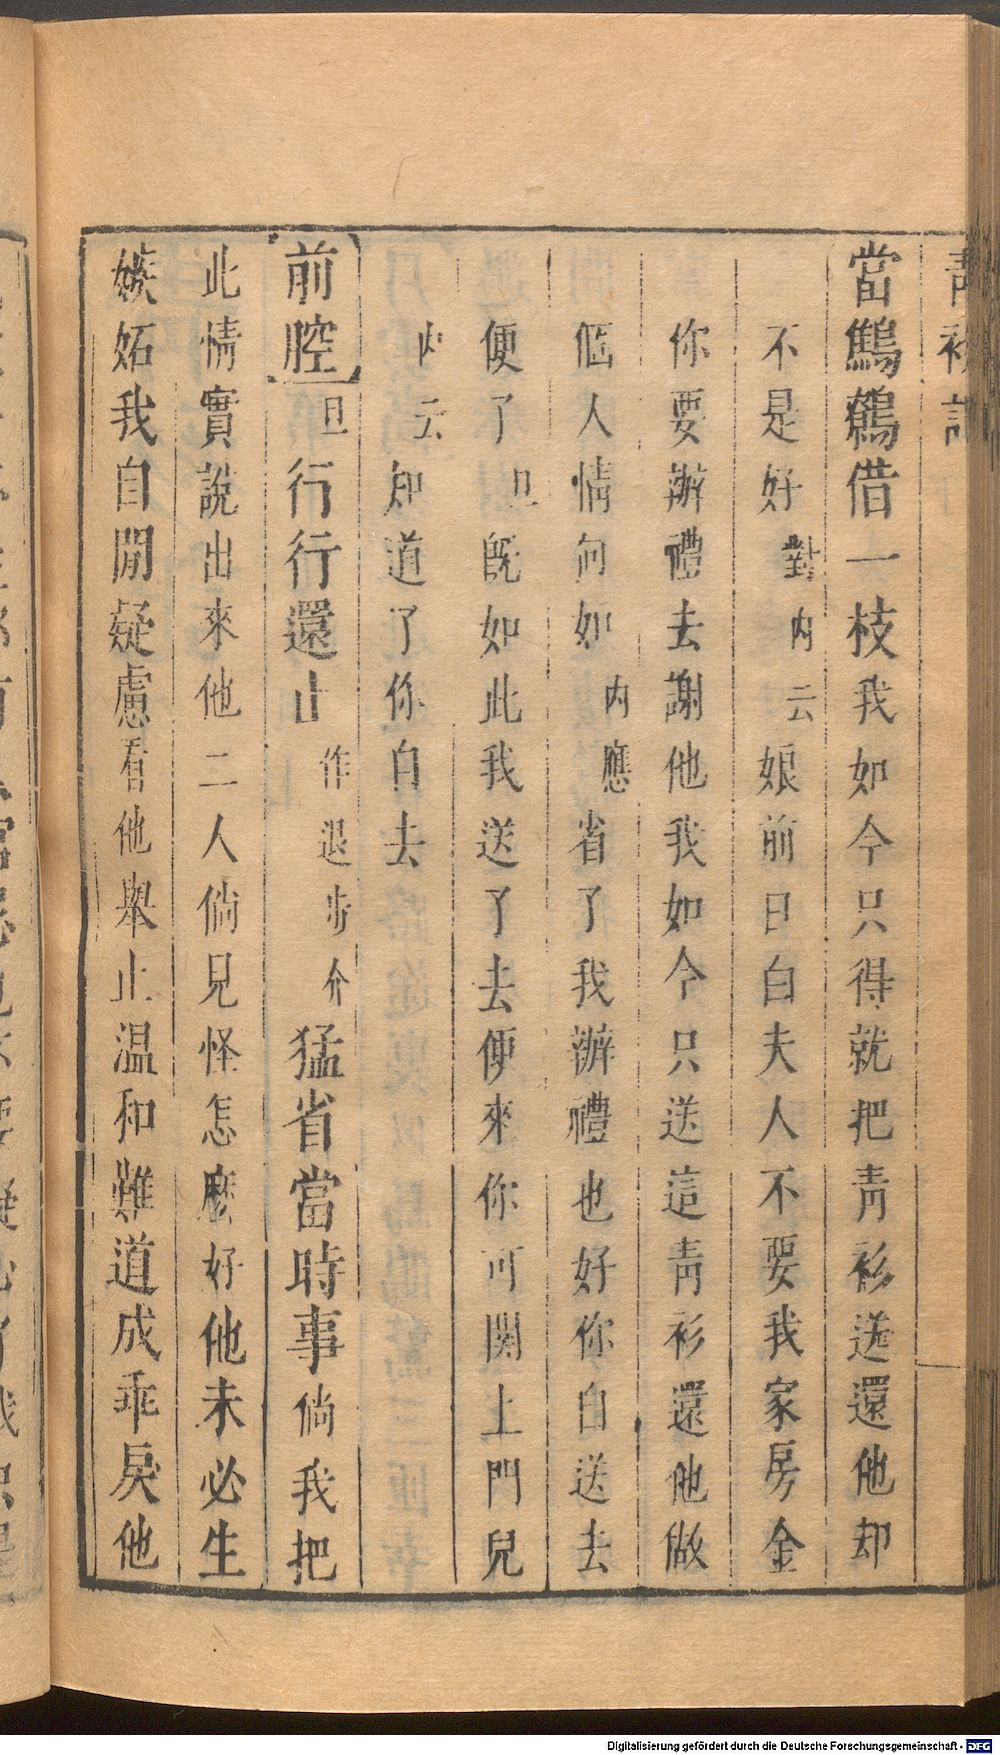 青衫記
當鷦鷯借一枝我如今只得就把靑衫送還他却
不是好對内云娘前日白夫人不要我家房金
你要辦禮去謝他我如今只送這靑衫還他做
個人情何如内應省了我辦禮也好你自送去
便了旦既如此我送了去便來你可関上門兒
内云知道了你自去
前腔旦行行還止作退步介猛省當時事倘我把
此情實說出來他二人倘見怪怎麽好他未必生
嫉妬我自閒疑慮看他舉止温和難道成乖戾他
Digitalisierung gefördert durch die Deutsche Forschungsgemeinschaft - DFG